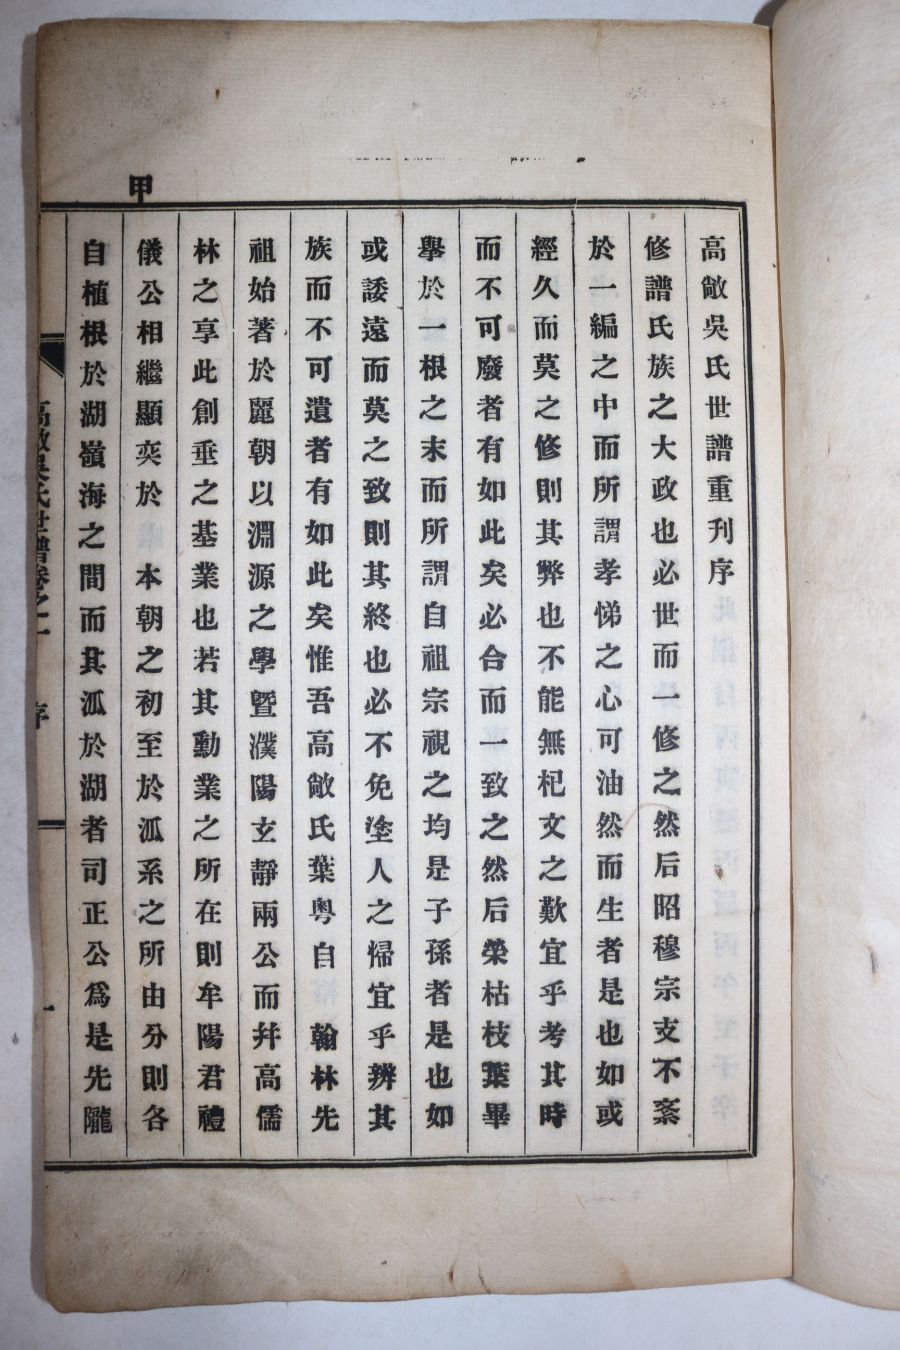 甲
高敞吳氏世譜重刊序
修譜氏族之大政也必世而一修之然后昭穆宗支不紊
於一編之中而所謂孝悌之心可油然而生者是也如或
經久而莫之修則其弊也不能無杞文之歎宜乎考其時
而不可廢者有如此矣必合而一致之然后榮枯枝葉畢
擧於一根之末而所謂自祖宗視之均是子孫者是也如
或諉遠而莫之致則其終也必不免塗人之歸宜乎辨其
族而不可遺者有如此矣惟吾高敞氏葉粤自 翰林先
祖始著於麗朝以淵源之學曁濮陽玄靜兩公而幷高儒
林之享此創垂之基業也若其勳業之所在則牟陽君禮
儀公相繼顯奕於 本朝之初至於泒系之所由分則各
自植根於湖嶺海之間而其泒於湖者司正公爲是先隴
高敞吳氏世譜卷之一 序 一